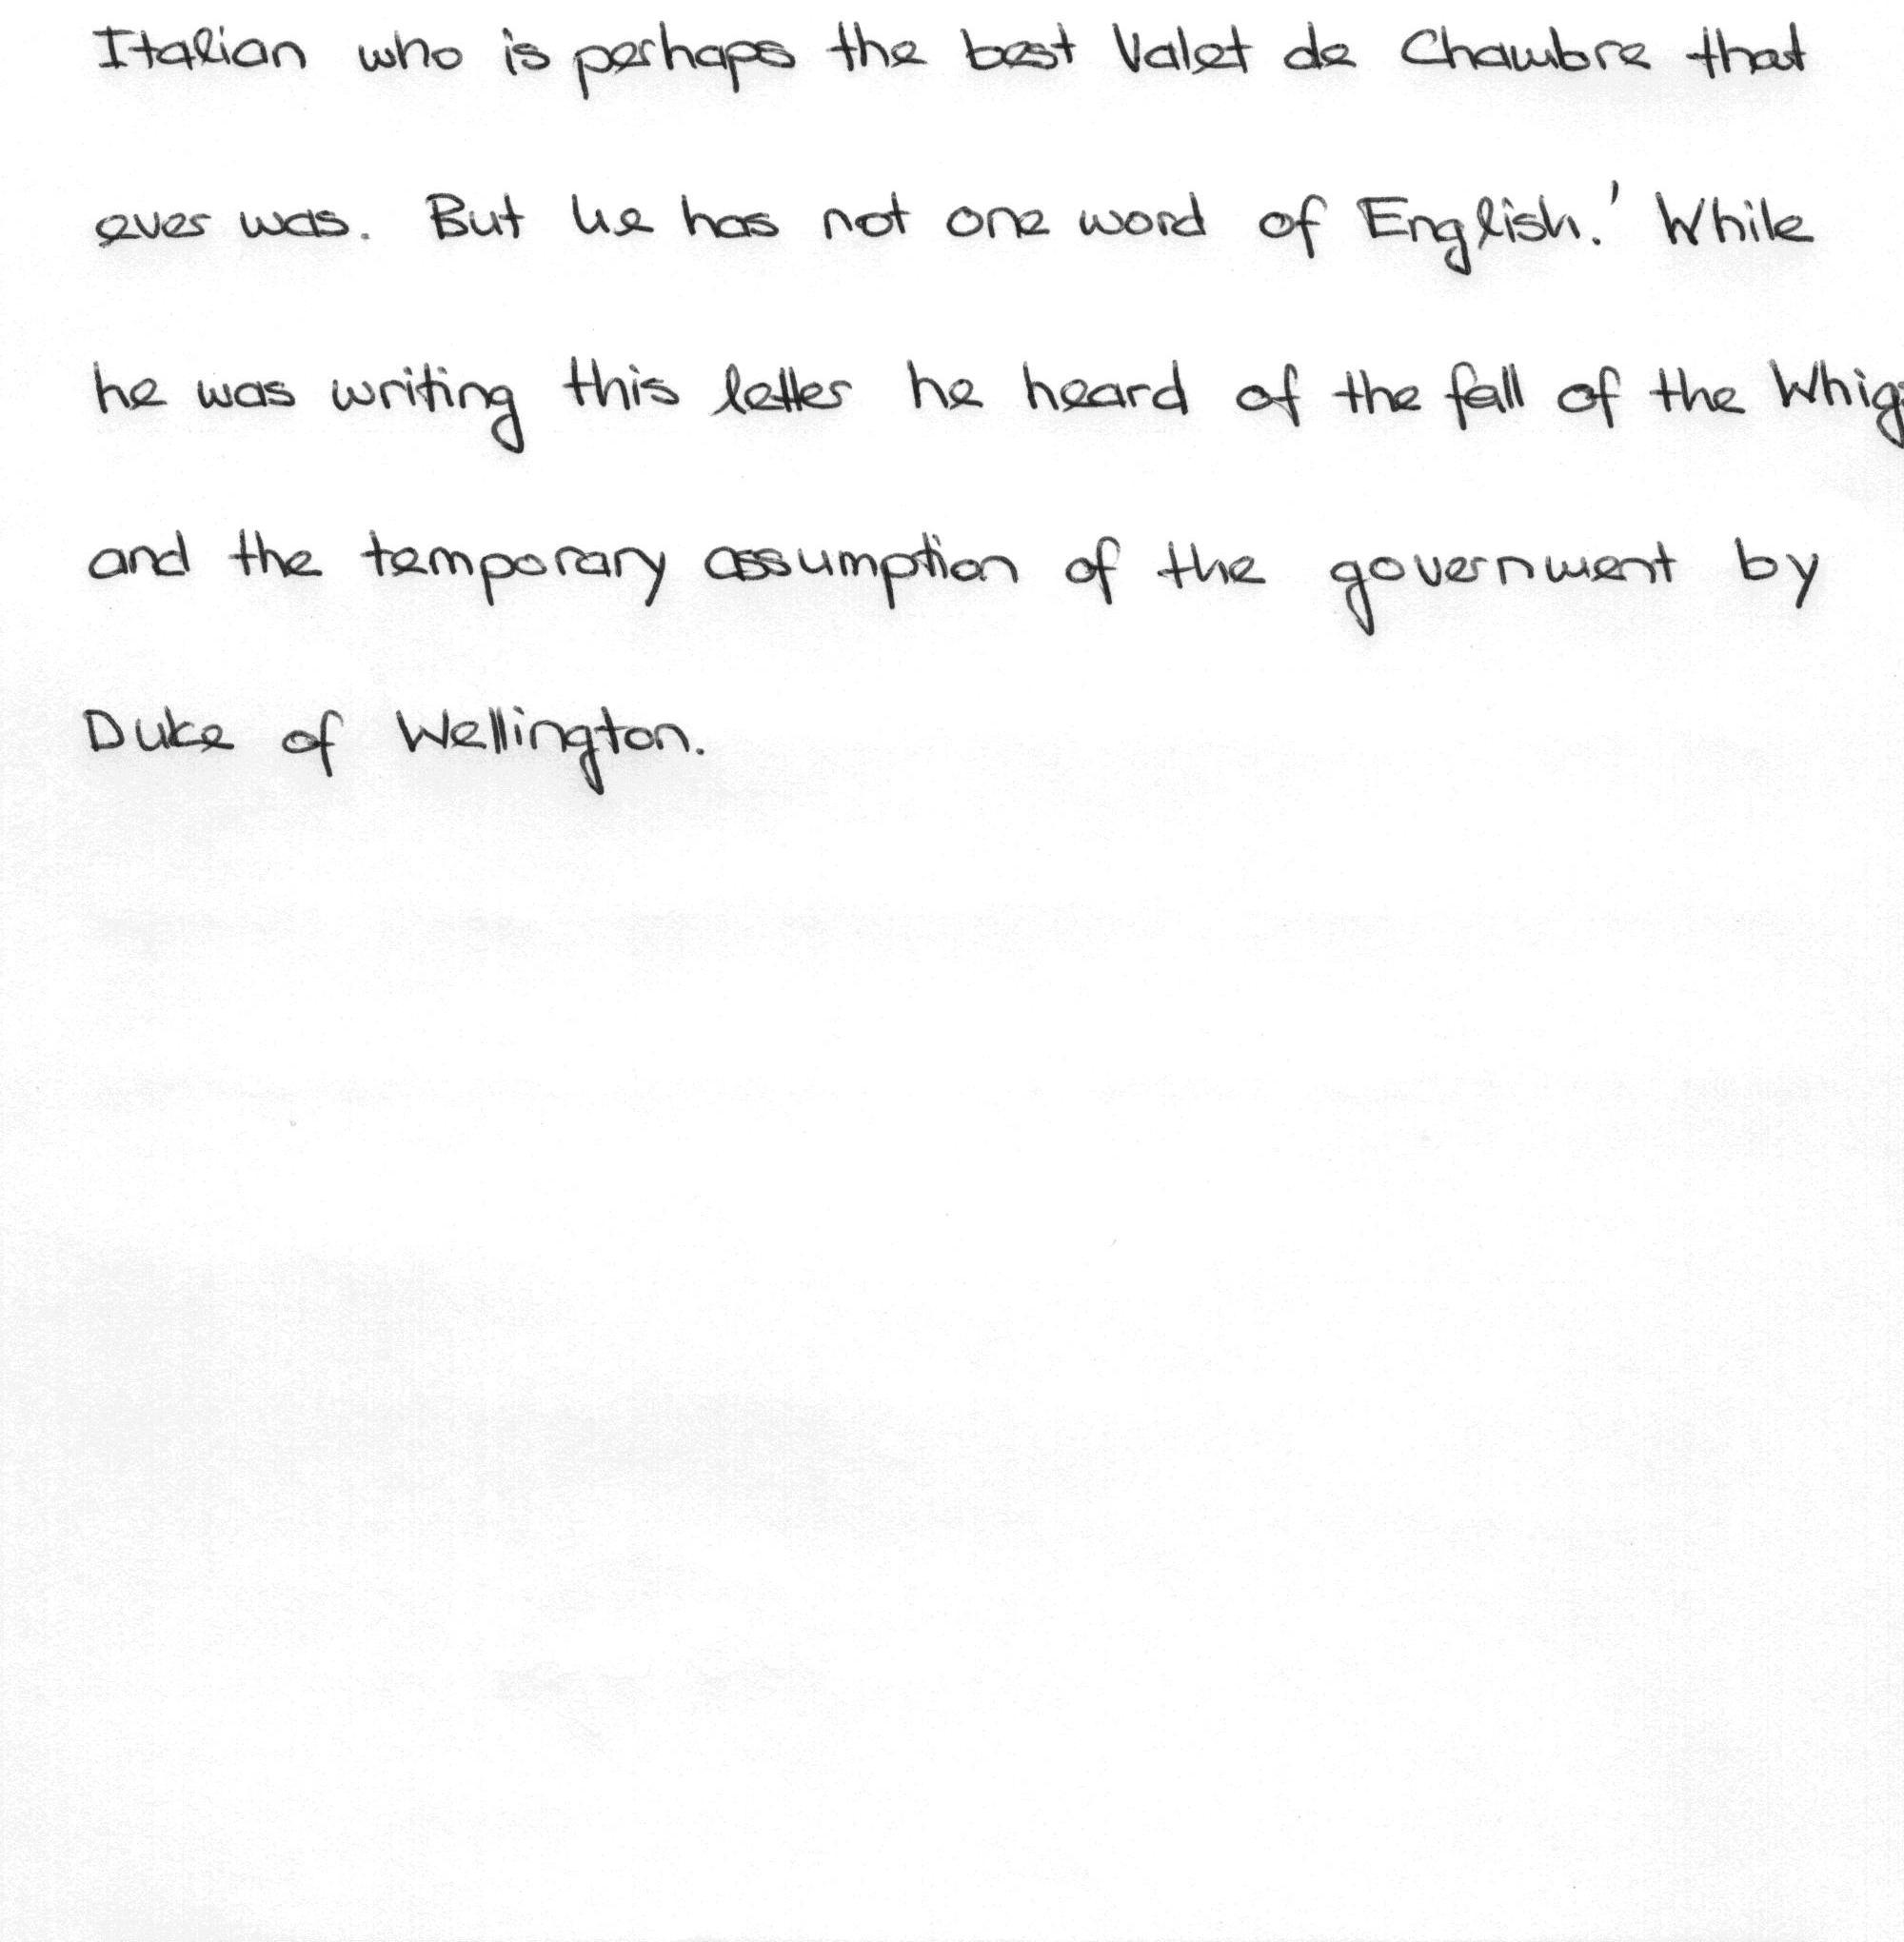 Italian who is perhaps the best Valet de Chambre that
ever was. But he has not one word of English.' While
he was writing this letter he heard of the fall of the Whigs
and the temporary assumption of the government by
Duke of Wellington.